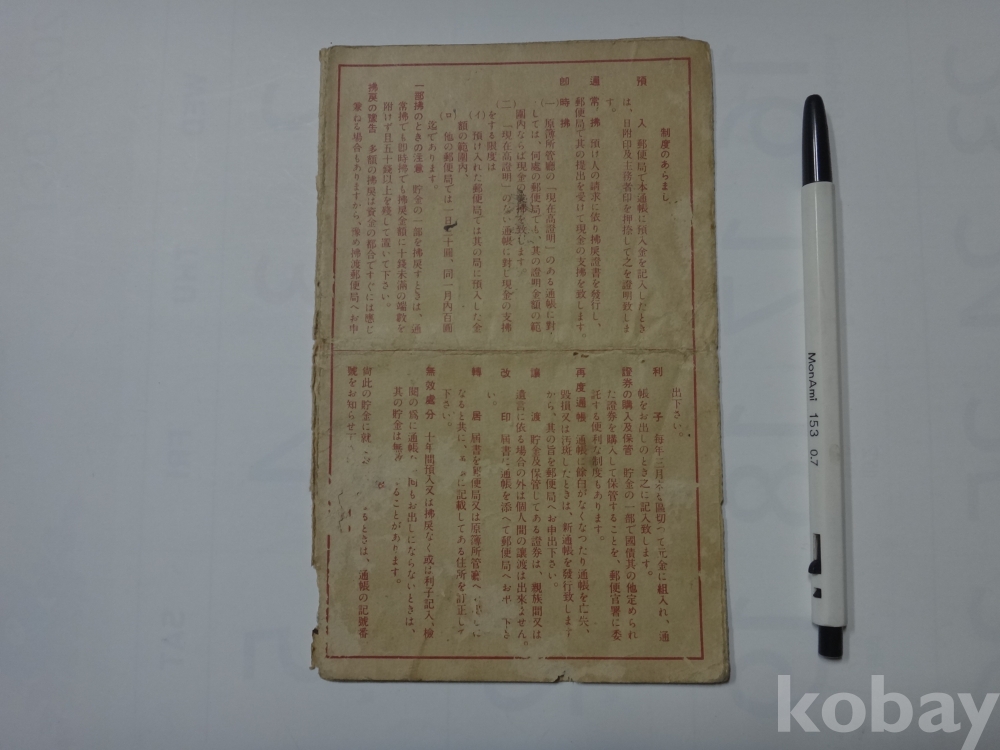 制度のあらまし
預入 郵便局で本通帳に預入金を記入したとき
は、日附印及主務者印を押捺して之を證明致しま
す。
通常拂 預け人の請求に依り拂戻證書を發行し、
郵便局で其の提出を受けて現金の支拂を致します。
即時拂
(一) 原簿所管廳の「現在高證明」のある通帳に對
しては、何處の郵便局でも、其の證明金額の範
圍内ならば現金の支拂を致します
(二) 「現在高證明」のない通帳に對し現金の支拂
をする限度は
(イ) 預け入れた郵便局では其の局に預入した金
額の範圍内、
(ロ) 他の郵便局では一日 十圓、同一月内百圓
迄であります。
一部拂のときの注意 貯金の一部を拂戻すときは、通
常拂でも即時拂でも拂戻金額に十錢未滿の端數を
附けず且五十錢以上を殘して置いて下さい。
拂戻の豫告 多額の拂戻は資金の都合ですぐには應じ
兼ねる場合もありますから、豫め拂渡郵便局へお申
出下さい。
利子 每年三月 を區切つて元金に組入れ、通
帳をお出しのとき之に記入致します。
證券の購入及保管 貯金の一部で國債其の他定められ
た證券を購入して保管することを、郵便官署に委
託する便利な制度もあります。
再度通帳 通帳に餘白がなくなつたり通帳を亡失、
毀損又は汚斑したときは、新通帳を發行致します
から、其の旨を郵便局へお申出下さい。
讓渡 貯金及保管してある證券は、親族間又は
遺言に依る場合の外は個人間の讓渡は出來ません。
改印 屆書に通帳を添へて郵便局へお 下さ
い。
轉居 屆書を郵便局又は原簿所管廳へ に
なると共に、 に記載してある住所を訂正して
下さい。
無效處分 十年間預入又は拂戻なく或は利子記入、檢
閱の爲に通帳 お出しにならないときは、
其の貯金は無 ることがあります。
尚此の貯金に就 るときは、通帳の記號番
號をお知らせ下
MonAmi 153 0.7
kobay